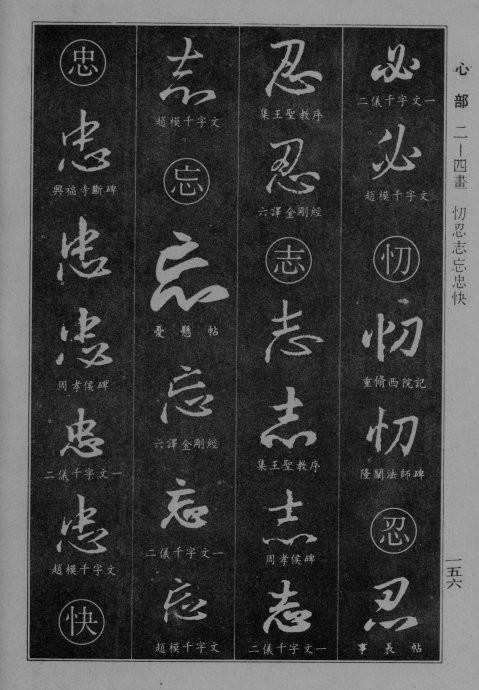 心部 二—四畫 忉忍志忘忠快
必
二儀千字文一
必
趙模千字文
忉
忉
重脩西院記
忉
隆闡法師碑
忍
忍
事長帖
忍
集王聖教序
忍
六譯金剛經
志
志
志
集王聖教序
志
周孝侯碑
志
二儀千字文一
志
趙模千字文
忘
忘
憂懸帖
忘
六譯金剛經
忘
二儀千字文一
忘
趙模千字文
忠
忠
興福寺斷碑
忠
忠
周孝侯碑
忠
二儀千字文一
忠
趙模千字文
快
一五六